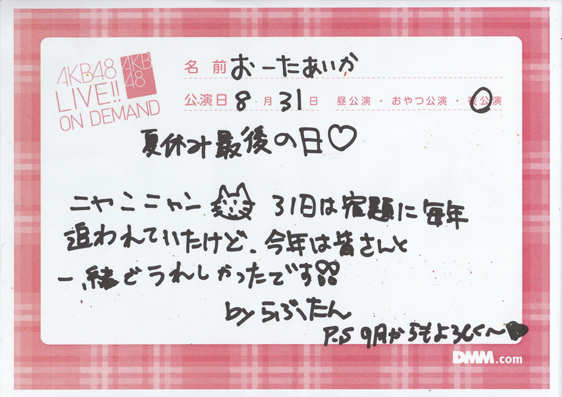 AKB48
LIVE!!
ON DEMAND
AKB
48
名前 おーたあいか
公演日 8・月 31日 昼公演・おやつ公演・夜公演
夏休み最後の日♡
ニャンニャン 31日は宿題に毎年
追われていたけど、今年は皆さんと
一緒でうれしかったです!!
by らぶたん
P.S 9月からもよろしく〜♥
DMM.com